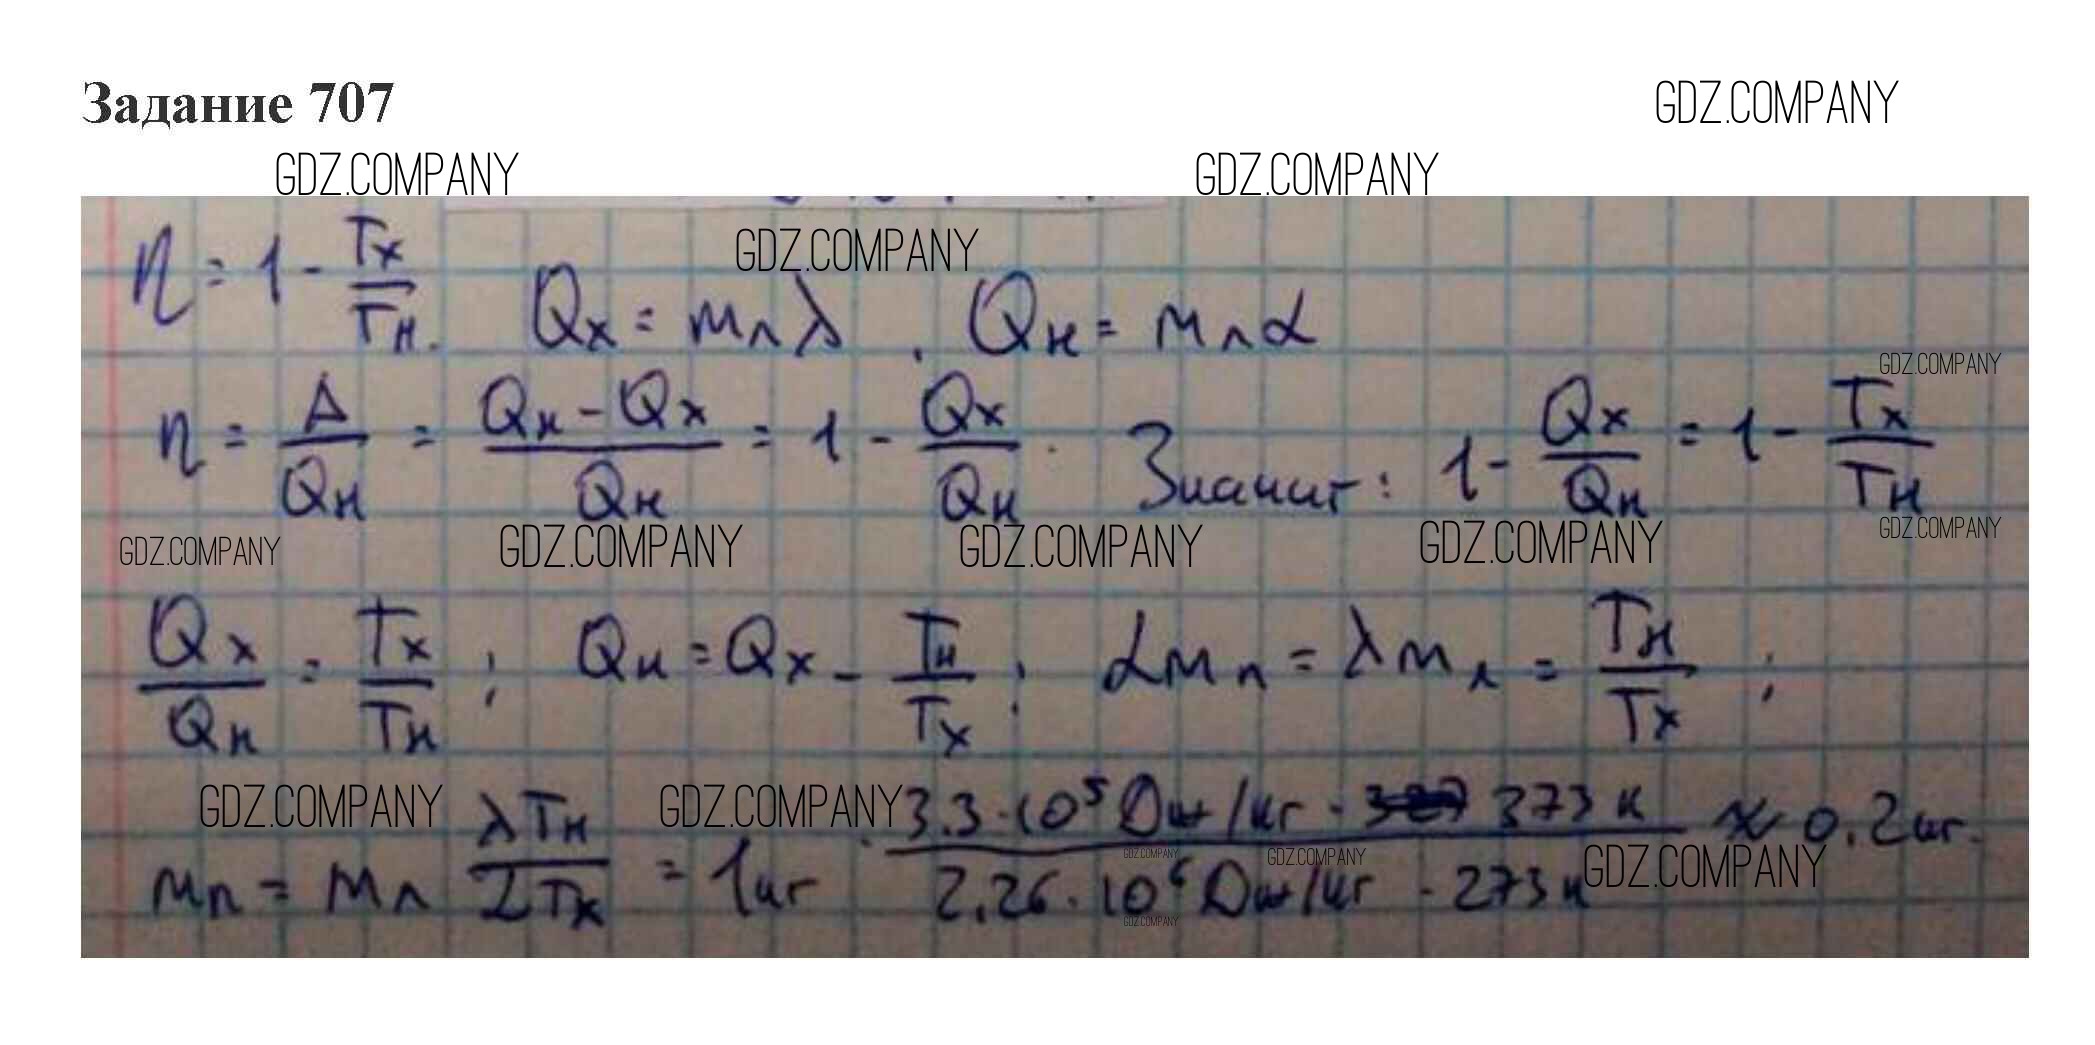 Задание 707
GDZ.COMPANY
GDZ.COMPANY GDZ.COMPANY
η = 1 - Tх/Tн. Qх = mлλ. Qн = mлL
GDZ.COMPANY
GDZ.COMPANY
η = A/Qн = (Qн - Qх)/Qн = 1 - Qх/Qн. Значит: 1 - Qх/Qн = 1 - Tх/Tн
GDZ.COMPANY GDZ.COMPANY GDZ.COMPANY GDZ.COMPANY GDZ.COMPANY
Qх/Qн = Tх/Tн; Qн = Qх - Tн/Tх; Lmп = λmл = Tн/Tх;
GDZ.COMPANY GDZ.COMPANY
mп = mл λTн/LTх = 1кг · 3.3·10⁵ Дж/кг · 373 к / 2.26·10⁶ Дж/кг · 273 к ≈ 0.2 кг.
GDZ.COMPANY GDZ.COMPANY GDZ.COMPANY
GDZ.COMPANY